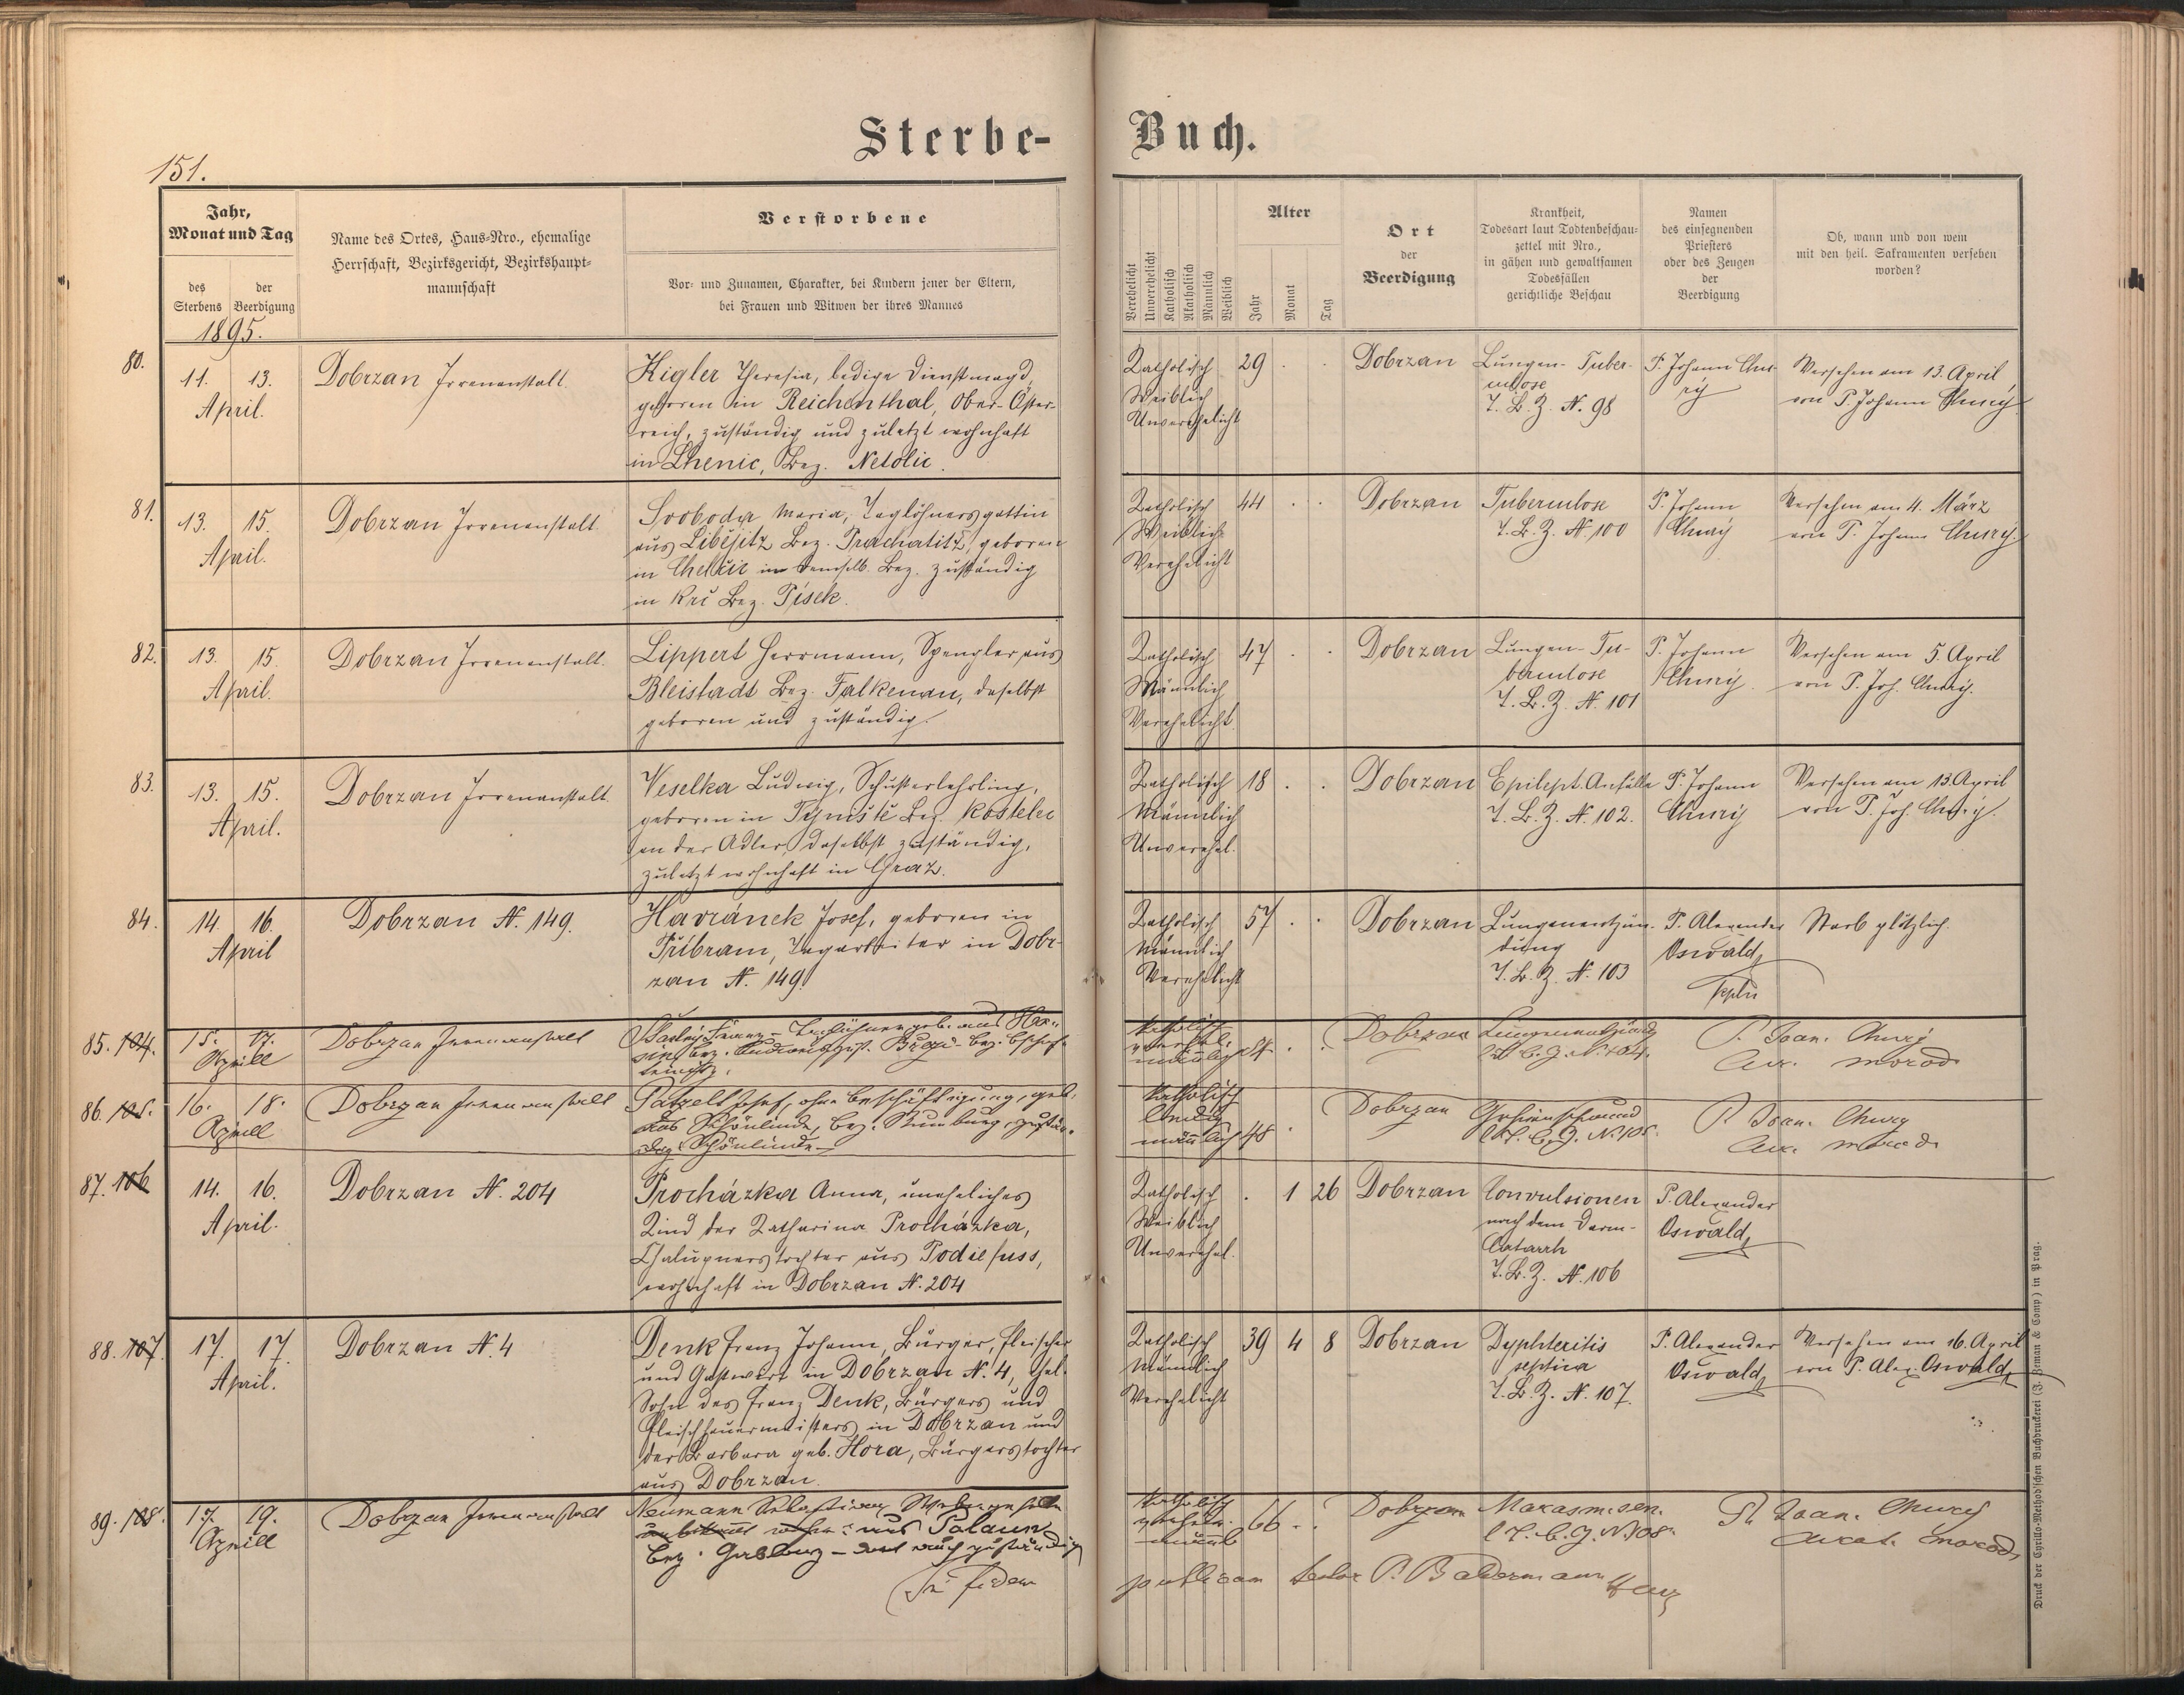 Sterbe-
Buch.
151.
Jahr,
Monat und Tag
des
Sterbens
der
Beerdigung
1895.
Name des Ortes, Haus-Nro., ehemalige
Herrschaft, Bezirksgericht, Bezirkshaupt-
mannschaft
Verstorbene
Vor- und Zunamen, Charakter, bei Kindern jener der Eltern,
bei Frauen und Witwen der ihres Mannes
Verehelicht
Unverehelicht
Katholisch
Akatholisch
Männlich
Weiblich
Alter
Jahr
Monat
Tag
Ort
der
Beerdigung
Krankheit,
Todesart laut Todtenbeschau-
zettel mit Nro.,
in gähen und gewaltsamen
Todesfällen
gerichtliche Beschau
Namen
des einsegnenden
Priesters
oder des Zeugen
der
Beerdigung
Ob, wann und von wem
mit den heil. Sakramenten versehen
worden?
80.
11. 13.
April.
Dobrzan Irrenanstalt
Kigler Theresia, ledige Dienstmagd,
geboren in Reichenthal, Ober-Öster-
reich, zuständig und zuletzt wohnhaft
in Lhenic, Bez. Netolic.
Katholisch
Weiblich
Unverehelicht
29 . .
Dobrzan
Lungen-Tuber-
culose
T. B. Z. N. 98
P. Johann Chu-
rý
Versehen am 13. April
von P. Johann Churý
81.
13. 15.
April.
Dobrzan Irrenanstalt.
Svoboda Maria, Taglöhnersgattin
aus Libějitz Bez. Prachatitz, geboren
in Chelčic im demselb. Bez. zuständig
in Bez. Písek.
Katholisch
Weiblich
Verehelicht
44 . .
Dobrzan
Tuberculose
T. B. Z. N. 100
P. Johann
Churý
Versehen am 4. März
von P. Johann Churý.
82.
13. 15.
April.
Dobrzan Irrenanstalt.
Lippert Herrmann, Spengler aus
Bleistadt Bez. Falkenau, daselbst
geboren und zuständig.
Katholisch
Männlich
Verehelicht
47 . .
Dobrzan
Lungen-Tu-
berculose
T. B. Z. N. 101
P. Johann
Churý.
Versehen am 5. April
von P. Joh. Churý.
83.
13. 15.
April.
Dobrzan Irrenanstalt
Veselka Ludwig, Schusterlehrling,
geboren in Týniště Bez. Kostelec
an der Adler, daselbst zuständig,
zuletzt wohnhaft in Graz.
Katholisch
Männlich
Unverehel.
18 . .
Dobrzan
Epilept. Anfälle
T. B. Z. N. 102.
P. Johann
Churý
Versehen am 13. April
von P. Joh. Churý.
84.
14. 16.
April
Dobrzan N. 149.
Havránek Josef, geboren in
Příbram, Tagarbeiter in Dobr-
zan N. 149.
Katholisch
Männlich
Verehelicht
57 . .
Dobrzan
Lungenentzün-
dung
T. B. Z. N. 103
P. Alexander
Oswald,
Starb plötzlich.
85. 104.
15. 17.
Aprill
Dobrzan Irrenanstalt
Katholisch
männlich
Dobrzan
Lungenentzündg
N. 104.
P. Joan. Churý
86. 105.
16. 18.
Aprill
Dobrzan Irrenanstalt
Patzelt Josef, ohne Beschäftigung, geb.
aus Schönlinde, Bez. Rumburg, zustän-
dig Schönlinde
Katholisch
ledig
männlich
48 .
Dobrzan
Gehirnschwund
N. 105.
P. Joan. Chury
87. 106
14. 16.
April.
Dobrzan N. 204
Procházka Anna, uneheliches
Kind der Katharina Procházka,
Chalupnerstochter aus Podiefuss,
wohnhaft in Dobrzan N. 204
Katholisch
Weiblich
Unverehel.
. 1 26
Dobrzan
Convulsionen
nach dem Darm-
Catarrh
T. B. Z. N. 106
P. Alexander
Oswald,
88. 107.
17. 17.
April.
Dobrzan N. 4
Denk Franz Johann, Bürger, Fleischer
und Gastwirt in Dobrzan N. 4, ehel.
Sohn des Franz Denk, Bürgers und
Fleischhauermeisters in Dobrzan und
der Barbara geb. Hora, Bürgerstochter
aus Dobrzan.
Katholisch
Männlich
Verehelicht
39 4 8
Dobrzan
Dyphteritis
septica
T. B. Z. N. 107.
P. Alexander
Oswald,
Versehen am 16. April
von P. Alex. Oswald,
89. 108.
17. 19.
Aprill
Dobrzan Irrenanstalt
Neumann Sebastian
aus Polaun
Bez. Gablonz - dort auch zuständig
Katholisch
66 . .
Dobrzan
Marasm. sen.
N. 108.
P. Joan. Churý
In fidem
publicam P. Baldermann
Druck der Cyrillo-Method'schen Buchdruckerei (J. Zeman & Comp) in Prag.